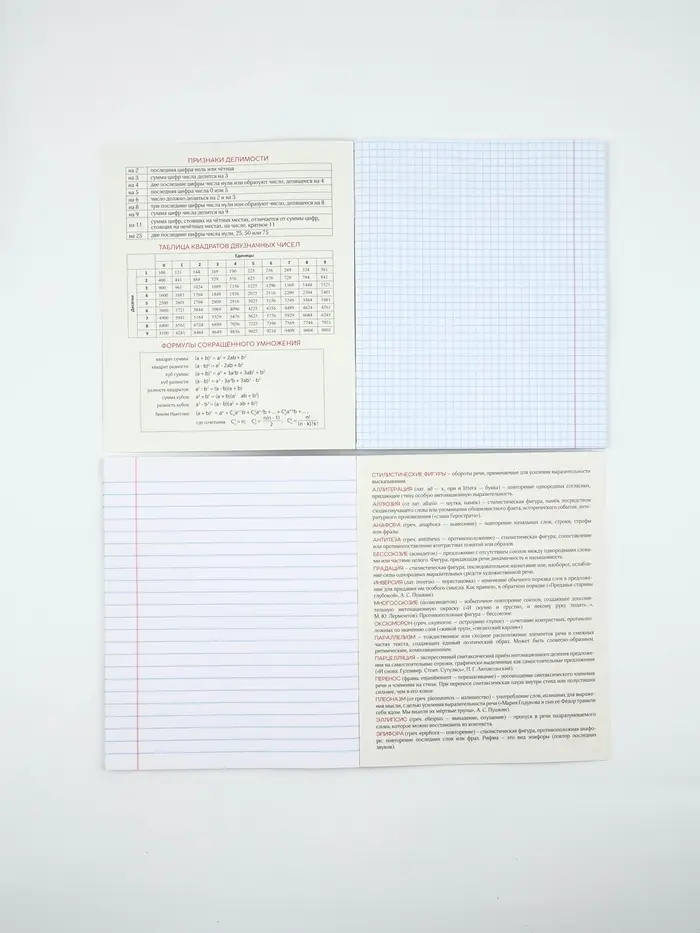 ПРИЗНАКИ ДЕЛИМОСТИ
на 2 последняя цифра ноль или чётная
на 3 сумма цифр делится на 3
на 4 две последние цифры числа нули или образуют число, делящееся на 4
на 5 последняя цифра числа 0 или 5
на 6 число должно делиться на 2 и на 3
на 8 три последние цифры числа нули или образуют число, делящееся на 8
на 9 сумма цифр числа делится на 9
на 11 сумма цифр, стоящих на чётных местах, отличается от суммы цифр,
стоящих на нечётных местах, на число, кратное 11
на 25 две последние цифры числа нули, 25, 50 или 75
ТАБЛИЦА КВАДРАТОВ ДВУЗНАЧНЫХ ЧИСЕЛ
Единицы
Десятки
0 1 2 3 4 5 6 7 8 9
1 100 121 144 169 196 225 256 289 324 361
2 400 441 484 529 576 625 676 729 784 841
3 900 961 1024 1089 1156 1225 1296 1369 1444 1521
4 1600 1681 1764 1849 1936 2025 2116 2209 2304 2401
5 2500 2601 2704 2809 2916 3025 3136 3249 3364 3481
6 3600 3721 3844 3969 4096 4225 4356 4489 4624 4761
7 4900 5041 5184 5329 5476 5625 5776 5929 6084 6241
8 6400 6561 6724 6889 7056 7225 7396 7569 7744 7921
9 8100 8281 8464 8649 8836 9025 9216 9409 9604 9801
ФОРМУЛЫ СОКРАЩЁННОГО УМНОЖЕНИЯ
квадрат суммы (a + b)² = a² + 2ab + b²
квадрат разности (a - b)² = a² - 2ab + b²
куб суммы (a + b)³ = a³ + 3a²b + 3ab² + b³
куб разности (a - b)³ = a³ - 3a²b + 3ab² - b³
разность квадратов a² - b² = (a - b)(a + b)
сумма кубов a³ + b³ = (a + b)(a² - ab + b²)
разность кубов a³ - b³ = (a - b)(a² + ab + b²)
бином Ньютона
где сочетания
СТИЛИСТИЧЕСКИЕ ФИГУРЫ – обороты речи, применяемые для усиления выразительности
высказывания.
АЛЛИТЕРАЦИЯ (лат. ad — к, при и littera — буква) – повторение однородных согласных,
придающее стиху особую интонационную выразительность.
АЛЛЮЗИЯ (от лат. allusio — шутка, намёк) – стилистическая фигура, намёк посредством
сходнозвучащего слова или упоминания общеизвестного факта, исторического события, лите-
ратурного произведения («слава Герострата»).
АНАФОРА (греч. anaphora — вынесение) – повторение начальных слов, строки, строфы
или фразы.
АНТИТЕЗА (греч. antithesis — противоположение) – стилистическая фигура, сопоставление
или противопоставление контрастных понятий или образов.
БЕССОЮЗИЕ (асиндетон) – предложение с отсутствием союзов между однородными слова-
ми или частями целого. Фигура, придающая речи динамичность и насыщенность.
ГРАДАЦИЯ – стилистическая фигура, последовательное нагнетание или, наоборот, ослабле-
ние силы однородных выразительных средств художественной речи.
ИНВЕРСИЯ (лат. inversio — перестановка) – изменение обычного порядка слов в предложе-
нии для придания им особого смысла. Как правило, в обратном порядке («Преданья старины
глубокой», А. С. Пушкин).
МНОГОСОЮЗИЕ (полисиндетон) – избыточное повторение союзов, создающее дополни-
тельную интонационную окраску («И скучно и грустно, и некому руку подать...»,
М. Ю. Лермонтов). Противоположная фигура – бессоюзие.
ОКСЮМОРОН (греч. oxymoron — остроумно-глупое) – сочетание контрастных, противопо-
ложных по значению слов («живой труп», «гигантский карлик»).
ПАРАЛЛЕЛИЗМ – тождественное или сходное расположение элементов речи в смежных
частях текста, создающих единый поэтический образ. Может быть словесно-образным,
ритмическим, композиционным.
ПАРЦЕЛЛЯЦИЯ – экспрессивный синтаксический приём интонационного деления предложе-
ния на самостоятельные отрезки, графически выделенные как самостоятельные предложения
(«И снова. Гулливер. Стоит. Сутулясь», П. Г. Антокольский).
ПЕРЕНОС (франц. enjambement – перешагивание) – несовпадение синтаксического членения
речи и членения на стихи. При переносе синтаксическая пауза внутри стиха или полустишия
сильнее, чем в его конце.
ПЛЕОНАЗМ (от греч. pleonasmos — излишество) – употребление слов, излишних для выраже-
ния мысли, с целью усиления выразительности речи («Мария Годунова и сын её Фёдор травили
себя ядом. Мы видели их мёртвые трупы», А. С. Пушкин).
ЭЛЛИПСИС (греч. elleipsis — выпадение, опущение) – пропуск в речи подразумеваемого
слова, которое можно восстановить из контекста.
ЭПИФОРА (греч. epiphora — повторение) – стилистическая фигура, противоположная анафо-
ре: повторение последних слов или фраз. Рифма – это вид эпифоры (повтор последних
звуков).